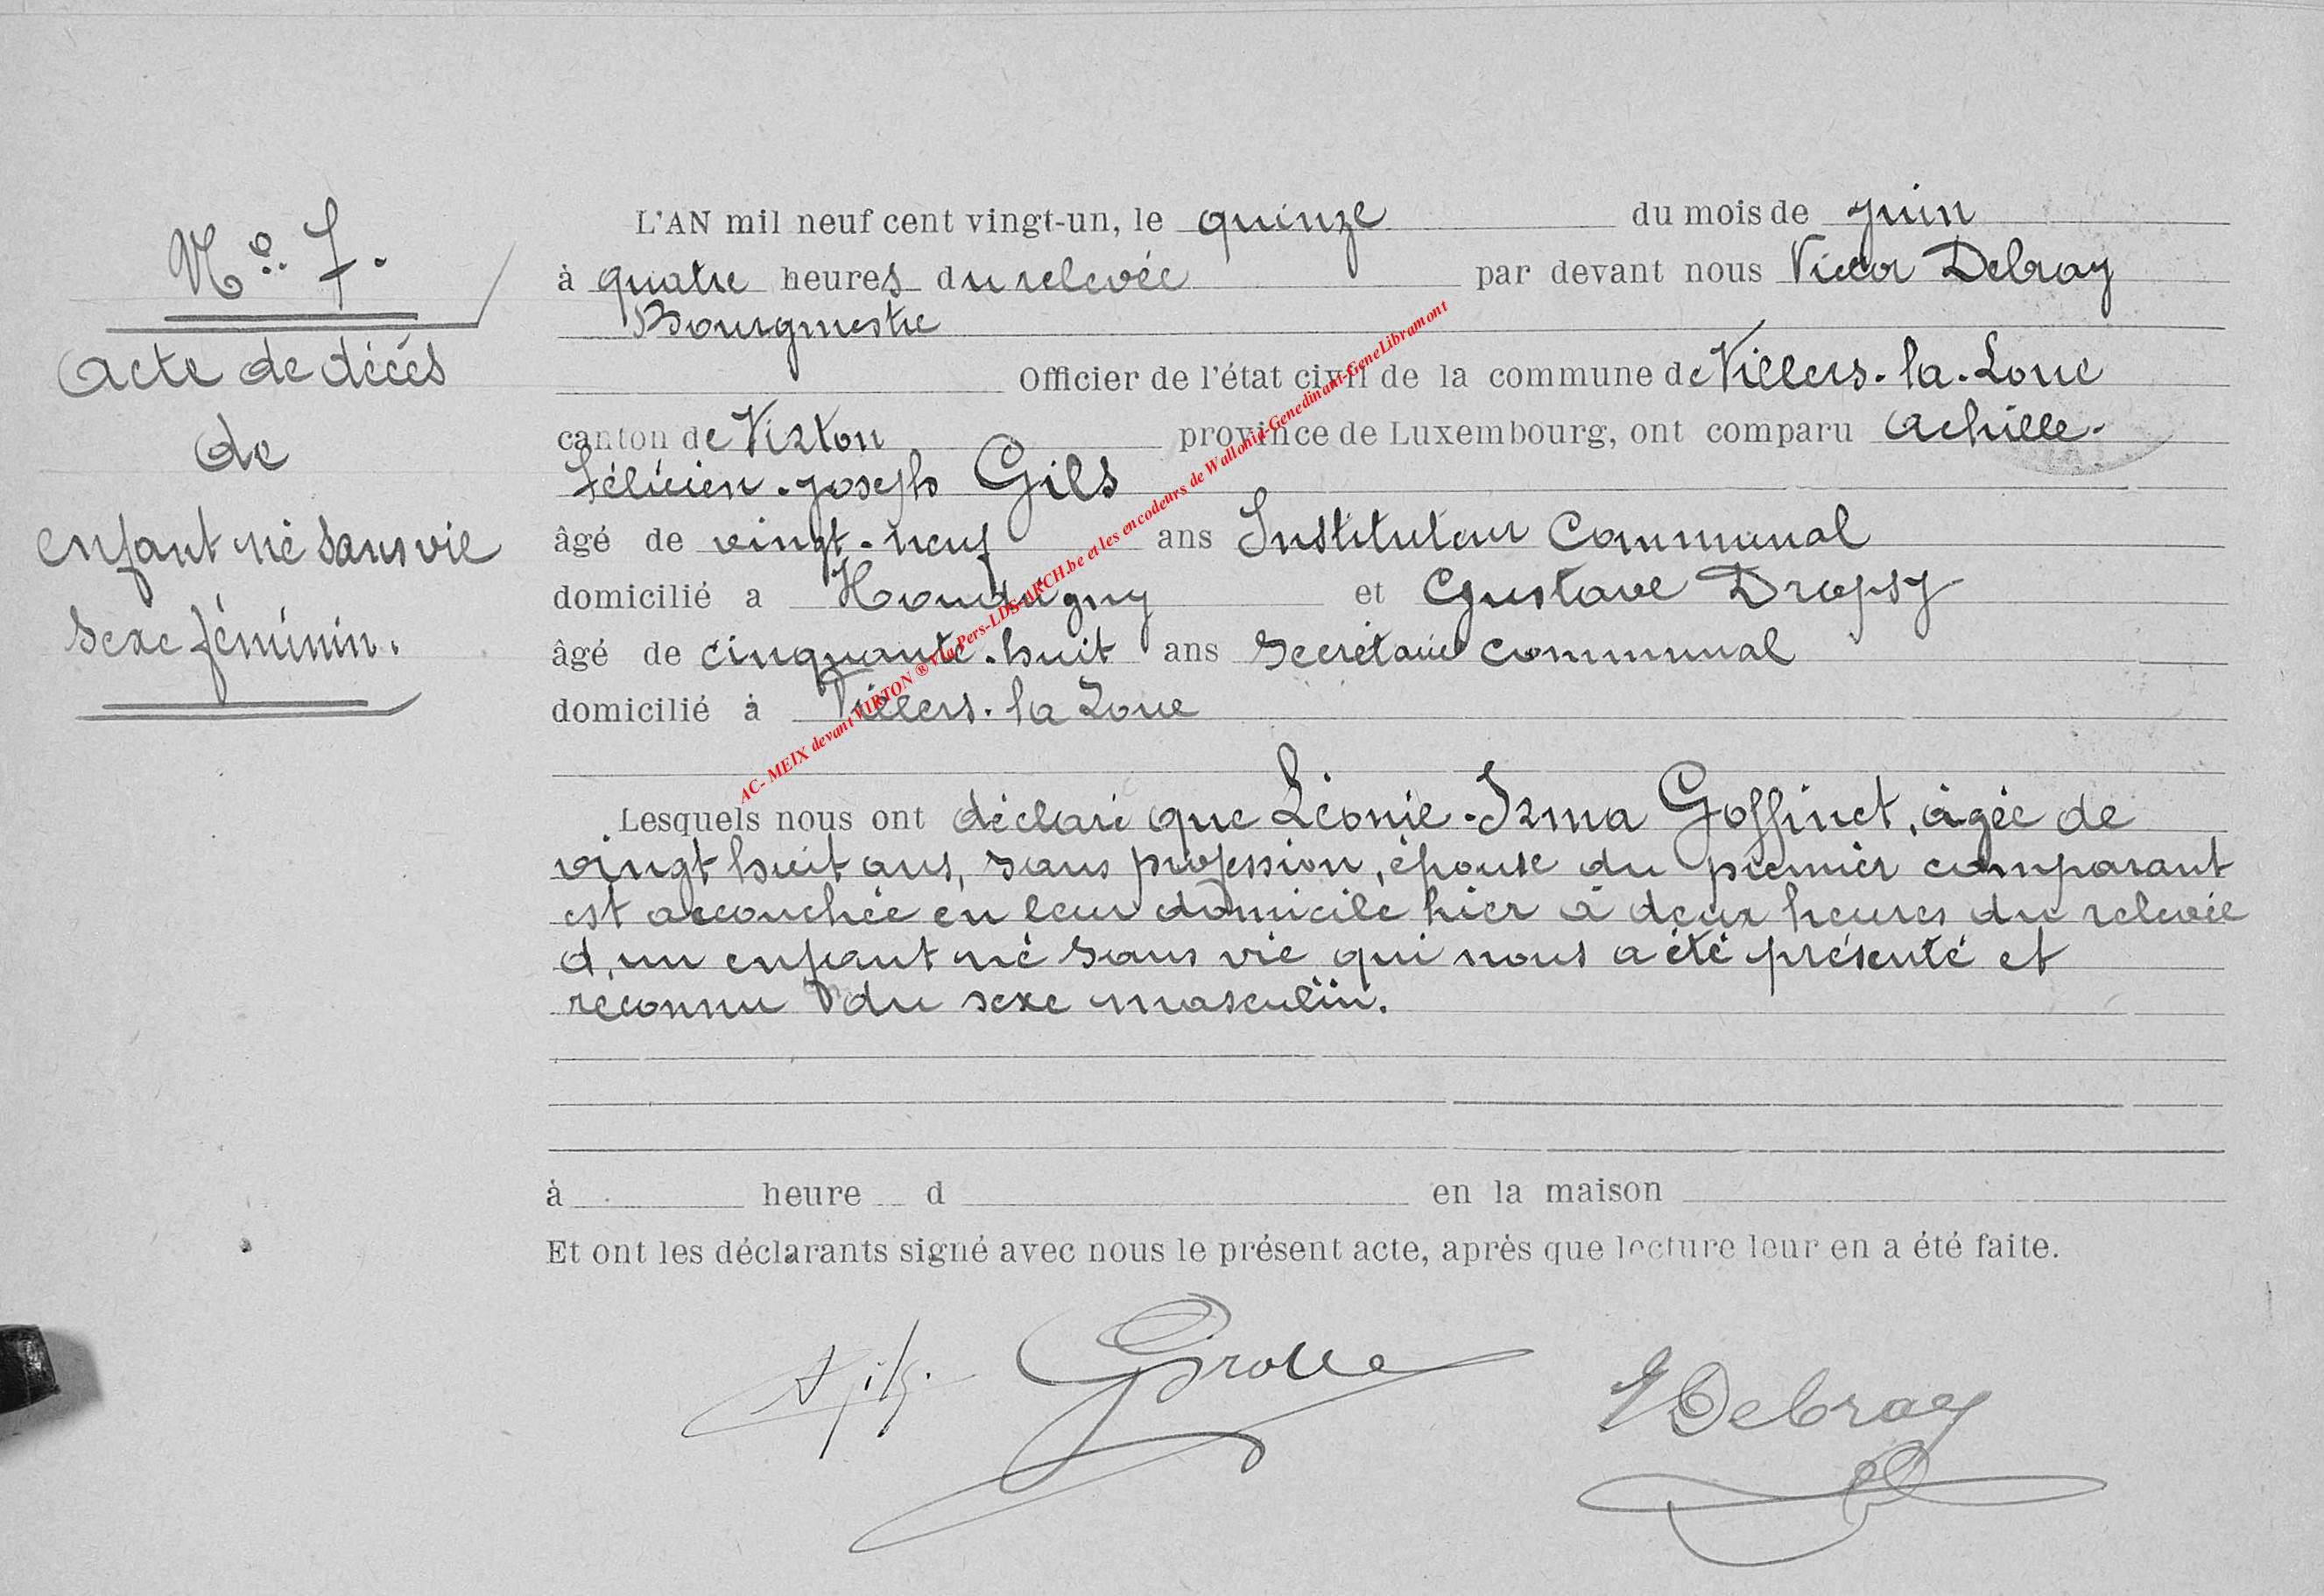 Nº. 7.
Acte de décès
de
enfant né sans vie
sexe féminin.
L'AN mil neuf cent vingt-un, le quinze du mois de juin
à quatre heures du relevée par devant nous Victor Debray
Bourgmestre
Officier de l'état civil de la commune de Villers-la-Loue
canton de Virton province de Luxembourg, ont comparu Achille-
Félicien-Joseph Gils
âgé de vingt-neuf ans Instituteur Communal
domicilié a Houdrigny et Gustave Dropsy
âgé de cinquante-huit ans Secrétaire communal
domicilié à Villers-la Loue
Lesquels nous ont déclaré que Léonie-Irma Goffinet, âgée de
vingt huit ans, sans profession, épouse du premier comparant
est accouchée en leur domicile hier à deux heures du relevée
d'un enfant né sans vie qui nous a été présenté et
reconnu du sexe masculin.
à heure d en la maison
Et ont les déclarants signé avec nous le présent acte, après que lecture leur en a été faite.
A Gils. VDebray
AC- MEIX devant VIRTON ® via Pers-LDS-ARCH.be et les encodeurs de Wallonia-Genedinant-GeneLibramont